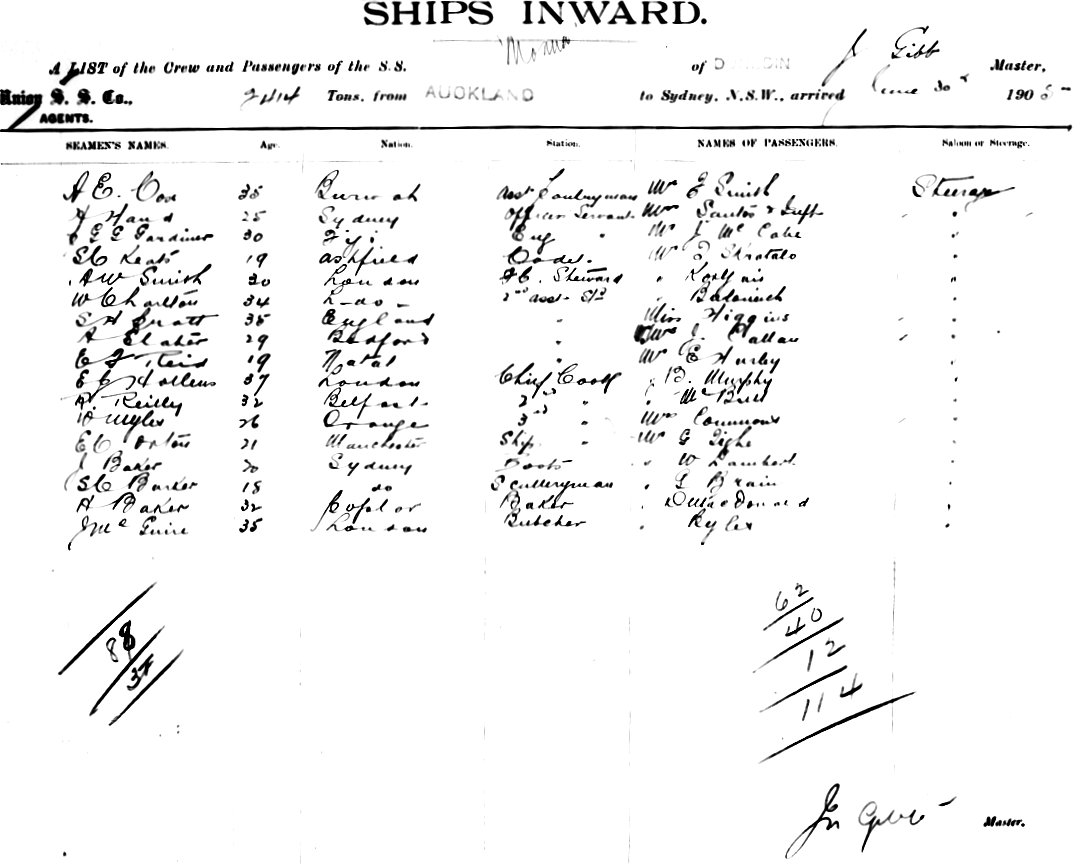 SHIPS INWARD.
A LIST of the Crew and Passengers of the S.S. of DUNEDIN J Gibb Master,
Union S. S. Co., 2414 Tons, from AUCKLAND to Sydney, N.S.W., arrived June 30 1905
AGENTS.
SEAMEN'S NAMES. Age. Nation. Station. NAMES OF PASSENGERS. Saloon or Steerage.
A E. Cox 35 Burwah Asst Pantryman Mr E Smith Steerage
A Hand 25 Sydney Officer Servant Mrs Santos & Inft "
G E Gardiner 30 Fiji Eng " Mr J McCabe "
S C Keats 19 Ashfield Cadet. Mr
A W Smith 30 London F.C. Steward "
W Charlton 34 L-do- 2nd asst Std "
S H Pratt 35 England " Miss Higgins
A Slater 29 Bedford " J. Callan "
E J Reid 19 Natal " Mr E Hurley "
E C Hollens 37 London Chief Cook " B. Murphy "
R Reilly 32 Belfast 2nd " "
Myles 26 Orange 3rd " Mrs Commons "
E C Orton 21 Manchester Ship " Mr G Tighe "
J Baker 20 Sydney Boots " W Lambert "
S C Barker 18 do Sculleryman " Brain "
A Baker 32 Poplar Baker " D MacDonald "
J McGuire 35 London Butcher " Ryley "
88
38
62
40
12
114
Jn Gibb Master.